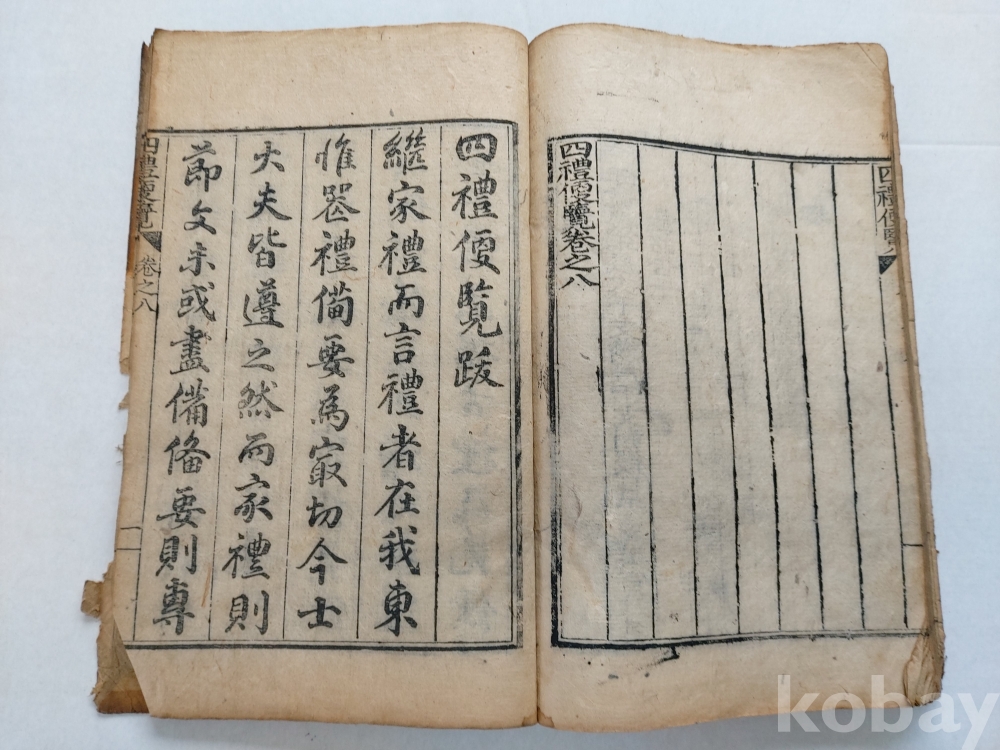 四禮便覽
四禮便覽卷之八
四禮便覽跋
繼家禮而言禮者在我東
惟喪禮備要為寂切今士
大夫皆遵之然而家禮則
節文未或盡備備要則專
四禮便覽 卷之八
一
kobay